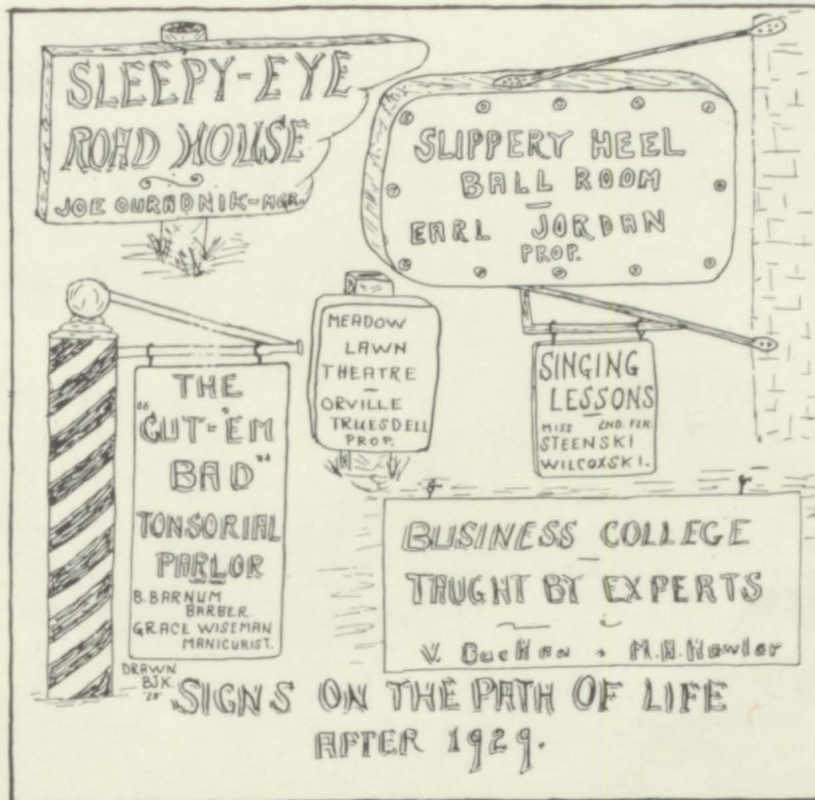 SLEEPY-EYE
ROAD HOUSE
JOE GURADNIK-MGR.
SLIPPERY HEEL
BALL ROOM
—
EARL JORDAN
PROP.
THE
"CUT-'EM
BAD"
TONSORIAL
PARLOR
B. BARNUM
BARBER
GRACE WISEMAN
MANICURIST.
MEADOW
LAWN
THEATRE
—
ORVILLE
TRUESDELL
PROP.
SINGING
LESSONS
MISS 2ND. FLR.
STEENSKI
WILCOXSKI.
BUSINESS COLLEGE
—
TAUGHT BY EXPERTS
V. Buchan & M.A. Hawler
DRAWN
BJK.
'28
"SIGNS ON THE PATH OF LIFE
AFTER 1929.